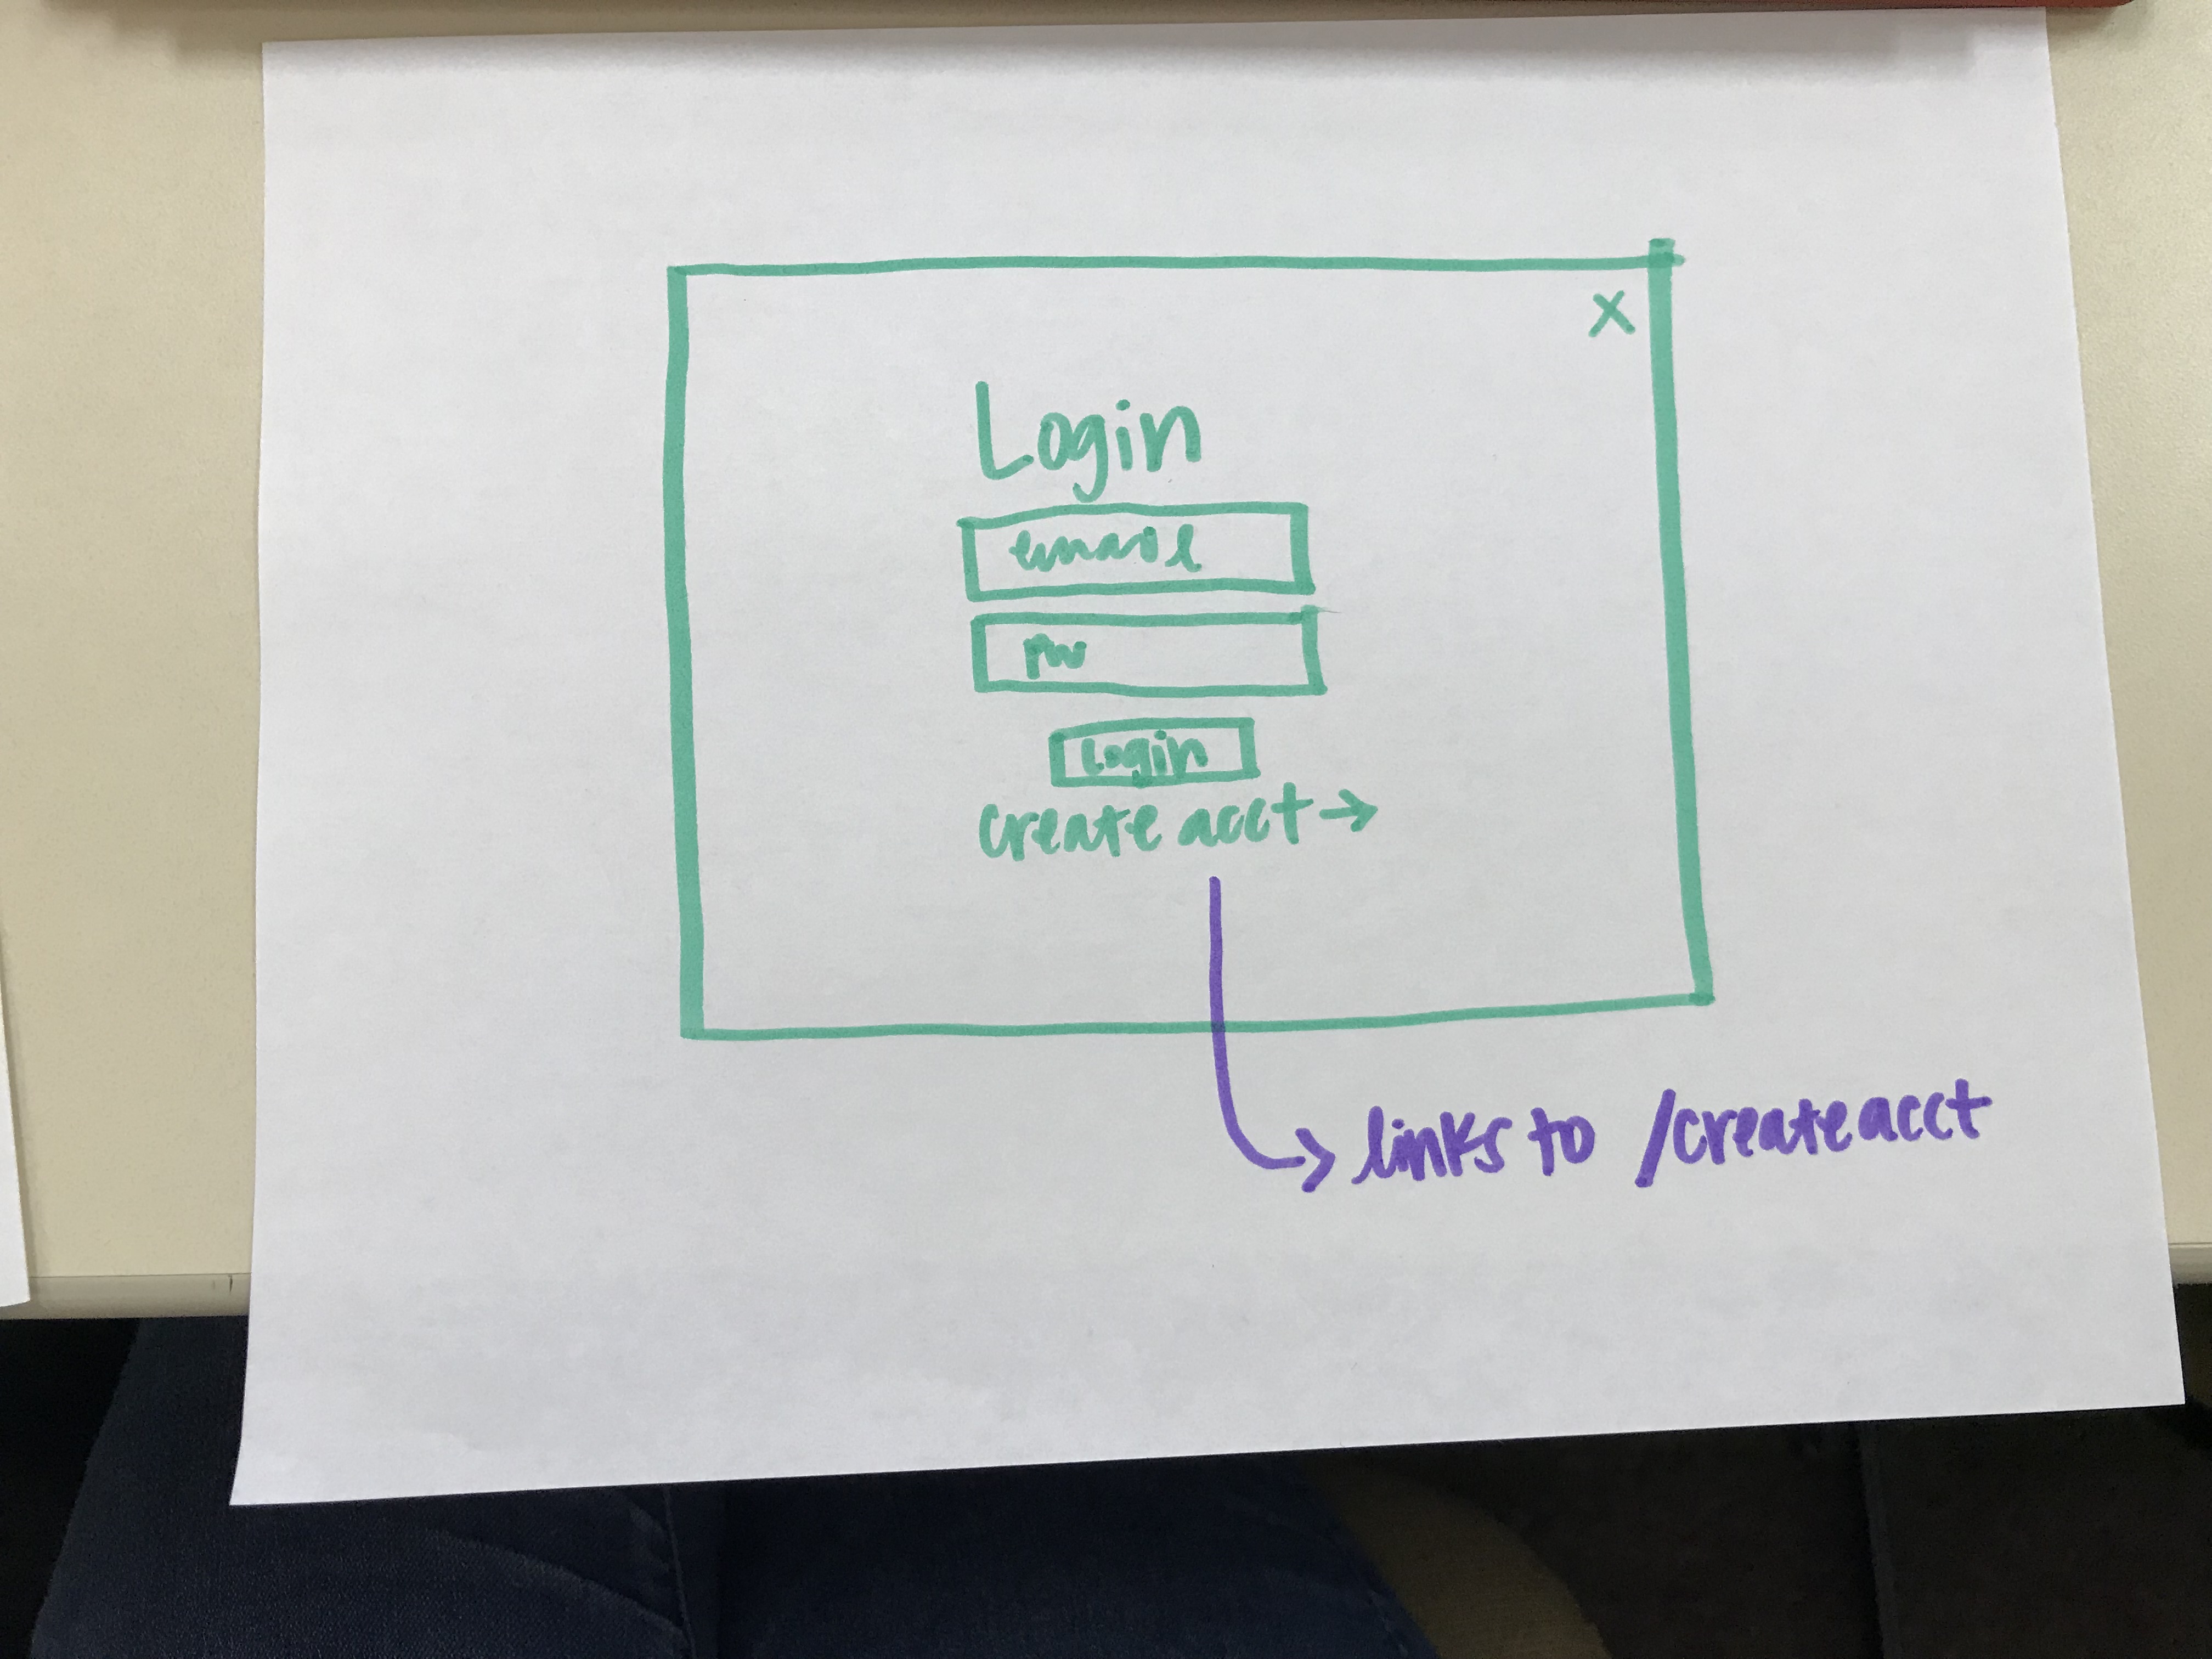 X
Login
pw
Login
create acct →
links to /createacct